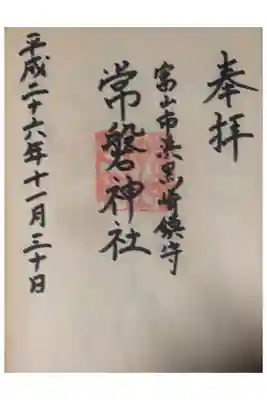 奉拝
富山市浜黒崎鎮守
常磐神社
平成二十六年十一月三十日